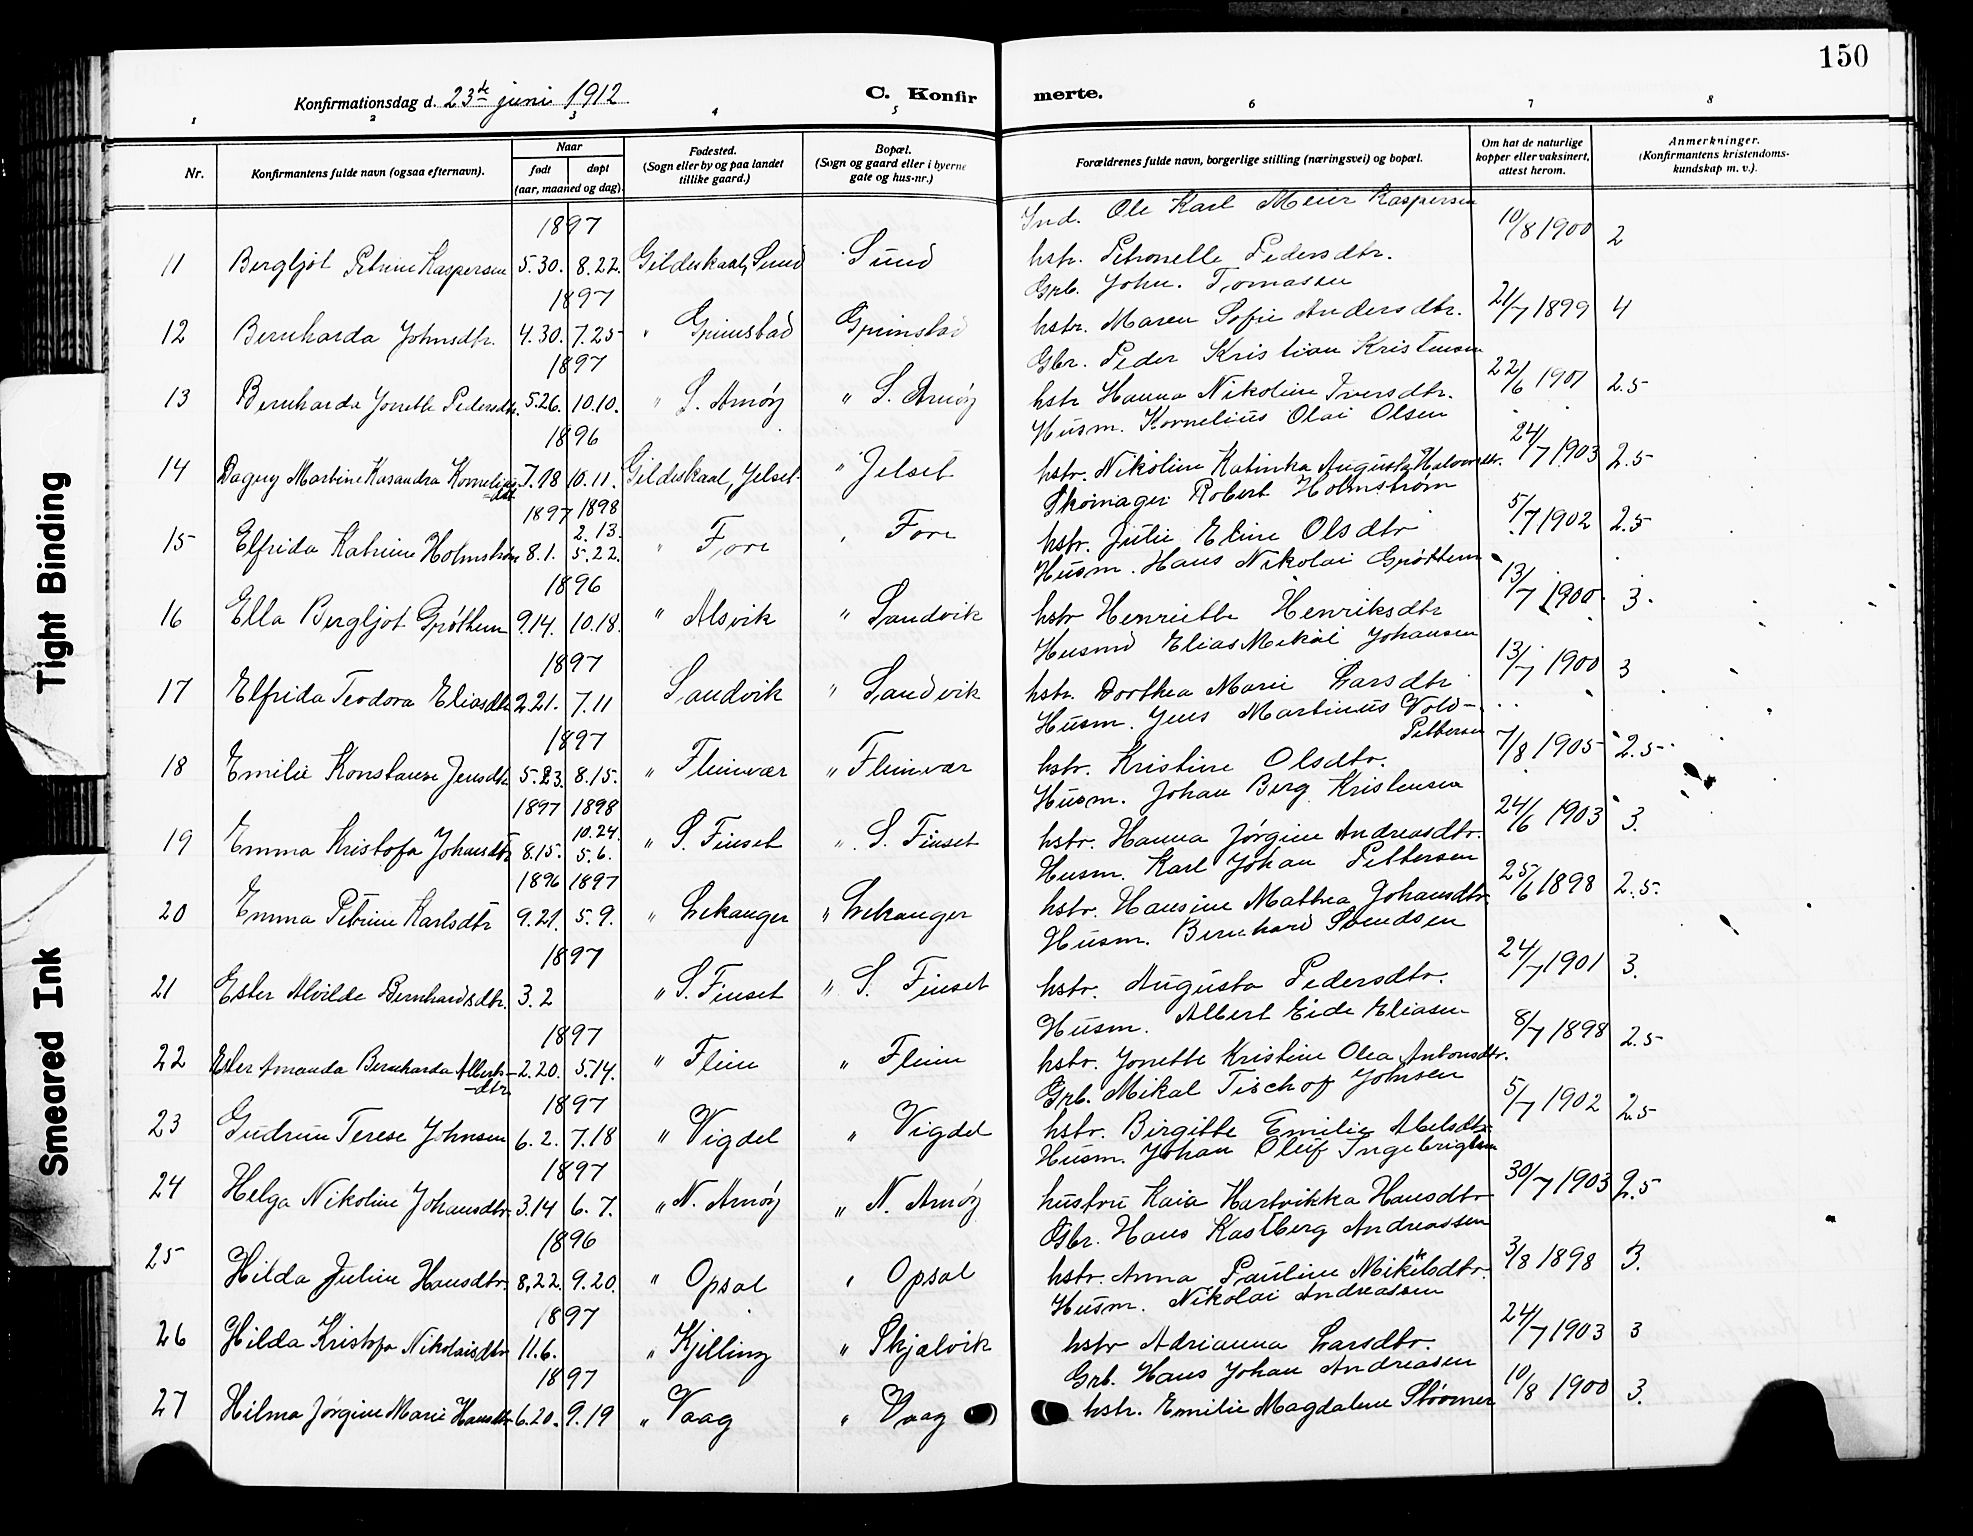 150
Konfirmationsdag d. 23de juni 1912
C. Konfirmerte.
1 2 3 4 5 6 7 8
Nr.
Konfirmantens fulde navn (ogsaa efternavn).
Naar
født døpt
(aar, maaned og dag).
Fødested.
(Sogn eller by og paa landet
tillike gaard.)
Bopæl.
(Sogn og gaard eller i byerne
gate og hus-nr.)
Forældrenes fulde navn, borgerlige stilling (næringsvei) og bopæl.
Om hat de naturlige
kopper eller vaksinert,
attest herom.
Anmerkninger.
(Konfirmantens kristendoms-
kundskap m. v.).
1897 Ind. Ole Karl Meier Kaspersen
11 Bergljot Petrine Kaspersen 5.30. 8.22. Gildeskaal, Sund Sund hstr. Petronelle Pedersdtr. 10/8 1900 2
1897 Grb. John. Tomassen
12 Bernharda Johnsdtr. 4.30. 7.25 " Grimstad Grimstad hstr. Maren Sofie Andersdtr. 21/7 1899 4
1897 Gbr. Peder Kristian Kristensen
13 Bernharda Jonette Pedersdtr. 5.26. 10.10. " S. Arnøy " S. Arnøy hstr Hanna Nikoline Iversdtr. 22/6 1901 2.5
1896 Husm. Kornelius Olai Olsen
14 Dagny Martine Kasandra Kornelius-dtr 7.18 10.11. Gildeskaal, Jelset " Jelset hstr. Nikoline Katinka Augusta Halvorsdtr. 24/7 1903 2.5
1897 1898 Skomager Robert Holmstrøm
15 Elfrida Katrine Holmstrøm 8.1. 2.13. 5.22. " Fore " Fore hstr. Julie Eline Olsdtr 5/7 1902 2.5
1896 Husm. Hans Nikolai Grøttem
16 Ella Bergljot Grøttem 9.14. 10.18. " Alsvik " Sandvik hstr Henriette Henriksdtr 13/7 1900 3.
1897 Husmd Elias Mekal Johansen
17 Elfrida Teodora Eliasdtr 2.21. 7.11 Sandvik " Sandvik hstr. Dorthea Marie Larsdtr 13/7 1900 3
1897 Husm. Jens Martinus Vold-Pettersen
18 Emilie Konstanse Jensdtr 5.23. 8.15. " Fleinvær " Fleinvær hstr. Kristine Olsdtr. 7/8 1905 2.5
1897 1898 Husm. Johan Berg Kristensen
19 Emma Kristofa Johansdtr 8.15. 10.24. 5.6. " S. Finset " S. Finset hstr. Hanna Jørgine Andreasdtr. 24/6 1903 3.
1896 1897 Husm. Karl Johan Pettersen
20 Emma Petrine Karlsdtr 9.21. 5.9. " Lekanger " Lekanger hstr. Hansine Mathea Johansdtr. 25/6 1898 2.5.
1897 Husm. Bernhard Svendsen
21 Ester Alvilde Bernhardsdtr. 3.2 " S. Finset " S. Finset hstr. Augusta Pedersdtr. 24/7 1901 3.
1897 Husm. Albert Eide Eliasen
22 Ester Amanda Bernharda Alberts-dtr 2.20. 5.14. " Flein " Flein hstr. Jonette Kristine Olea Antonsdtr. 8/7 1898 2.5
1897 Grb. Mikal Tischof Johnsen
23 Gudrun Terese Johnsen 6.2. 7.18 " Vigdel " Vigdel hstr. Birgitte Emilie Abelsdtr 5/7 1902 2.5
1897 Husm. Johan Oluf Ingebrigtsen
24 Helga Nikoline Johansdtr. 3.14 6.7. " N. Arnøy " N. Arnøy hustru Kaia Hartvikka Hansdtr 30/7 1903 2.5
1896 Gbr. Hans Kastberg Andreassen
25 Hilda Juline Hansdtr. 8.22. 9.20. " Opsal " Opsal hstr. Anna Pauline Mikalsdtr. 3/8 1898 3.
1897 Husm. Nikolai Andreassen
26 Hilda Kristofa Nikolaisdtr 11.6. " Kjelling " Skjælvik hstr Adrianna Larsdtr. 24/7 1903 3
1897 Grb. Hans Johan Andreasen
27 Hilma Jørgine Marie Hansdtr 6.20. 9.19 " Vaag " Vaag hstr. Emilie Magdalene Strømer 10/8 1900 3.
Tight Binding
Smeared Ink